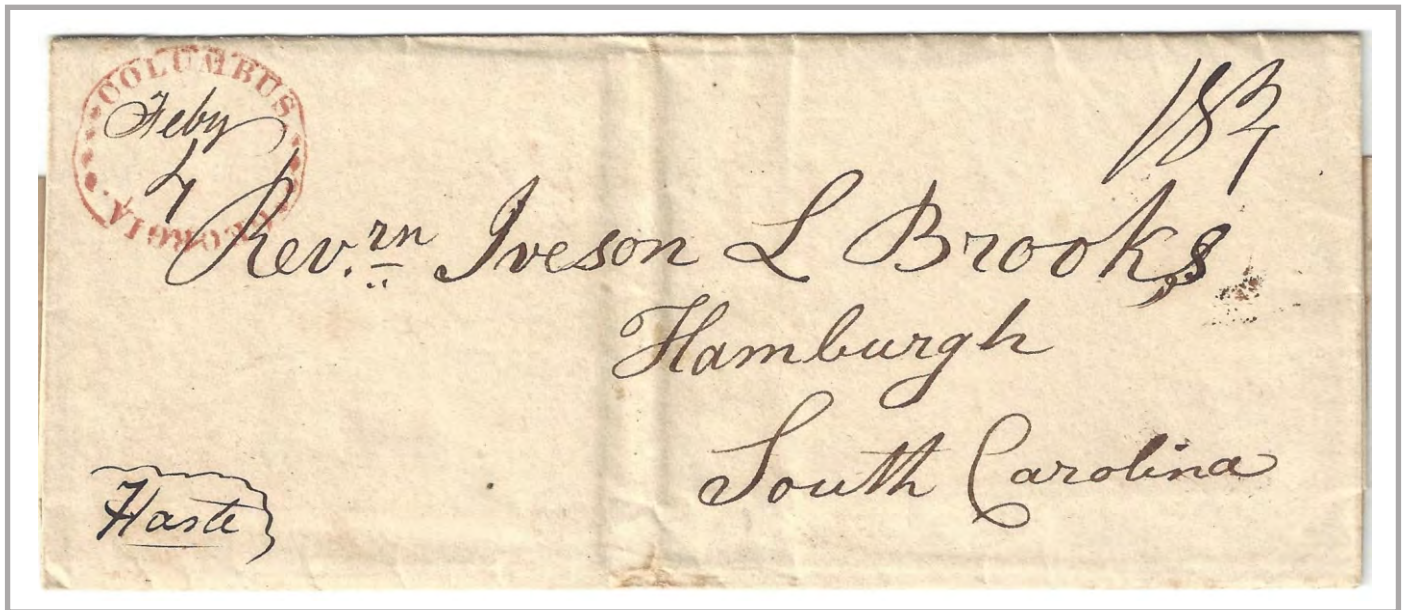 COLUMBUS
Feby
4
GEORGIA.
18¾
Rev.rn Iveson L Brooks
Hamburgh
South Carolina
Haste